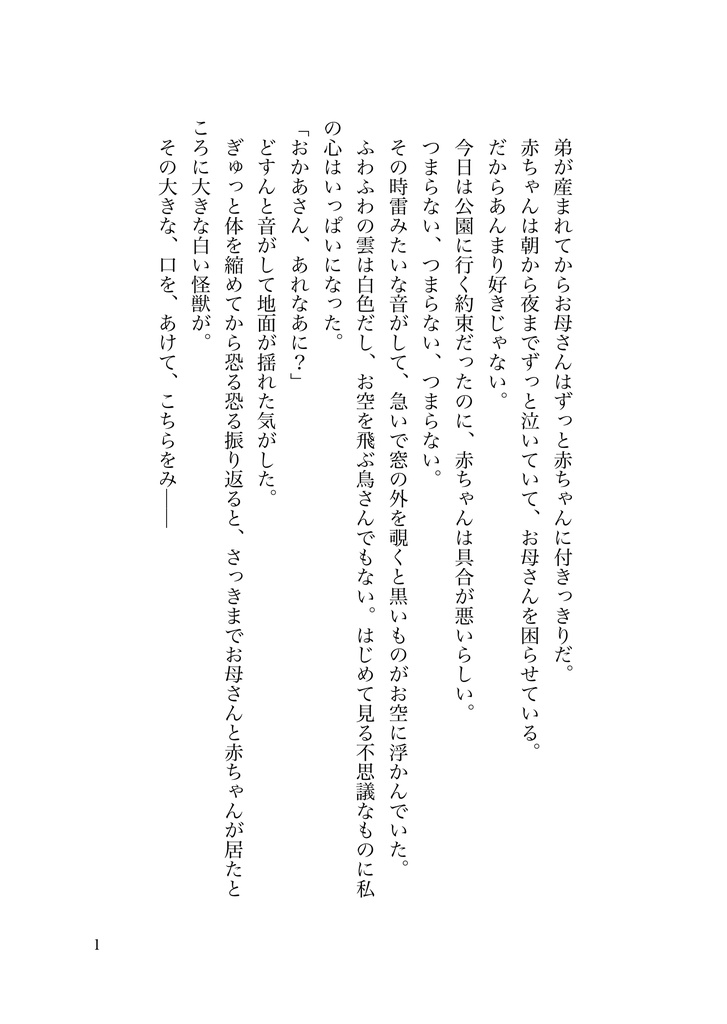 弟が産まれてからお母さんはずっと赤ちゃんに付きっきりだ。
赤ちゃんは朝から夜までずっと泣いていて、お母さんを困らせている。
だからあんまり好きじゃない。
今日は公園に行く約束だったのに、赤ちゃんは具合が悪いらしい。
つまらない、つまらない、つまらない。
その時雷みたいな音がして、急いで窓の外を覗くと黒いものがお空に浮かんでいた。
ふわふわの雲は白色だし、お空を飛ぶ鳥さんでもない。はじめて見る不思議なものに私
の心はいっぱいになった。
「おかあさん、あれなあに？」
どすんと音がして地面が揺れた気がした。
ぎゅっと体を縮めてから恐る恐る振り返ると、さっきまでお母さんと赤ちゃんが居たと
ころに大きな白い怪獣が。
その大きな、口を、あけて、こちらをみ――
1